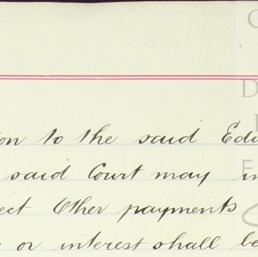 to the said
said Court may
Other payments
or interest shall be